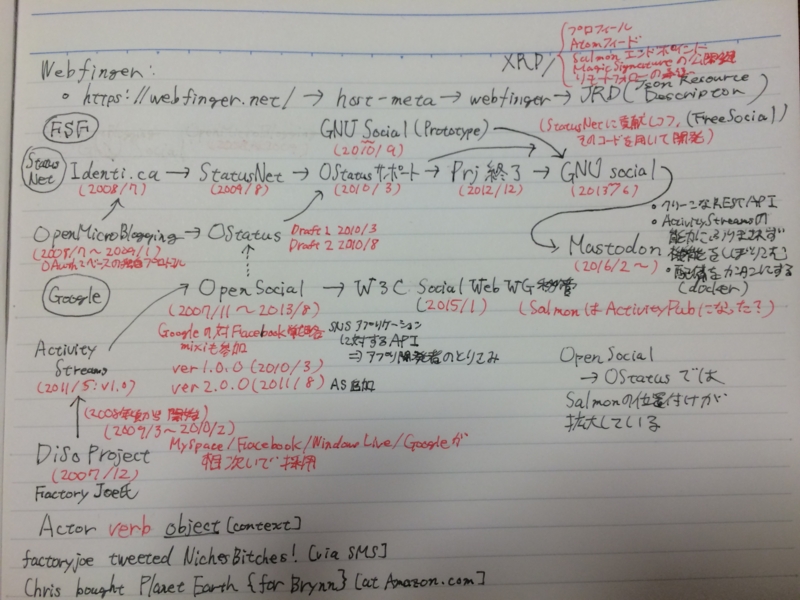 Webfinger:
XRD/
プロフィール
Atomフィード
Salmonエンドポイント
MagicSignatureの公開鍵
リモートフォローの
・https://webfinger.net/ → host-meta → webfinger → JRD(Json Resource Descriptor)
FSF
GNU Social (Prototype)
(2010/9)
(StatusNetに貢献しつつ, (FreeSocial)
そのコードを用いて開発)
Status Net
Identi.ca → StatusNet → OStatusサポート → Prj終了 → GNU social
(2008/7) (2009/8) (2010/3) (2012/12) (2013/6)
・クリーンなREST API
・ActivityStreamsの
能力にふりまわされず
機能をしぼりこむ
・配備をカンタンにする
(docker)
OpenMicroBlogging → OStatus
Draft1 2010/3
Draft2 2010/8
(2008/7〜2009/1)
OAuthベースの独自プロトコル
Mastodon
(2016/2〜)
Google
OpenSocial → W3C Social Web WG
(2007/11〜2013/8) (2015/1)
(SalmonはActivityPubになった?)
Googleの対Facebook戦略
mixiも参加
ver1.0.0 (2010/3)
ver2.0.0 (2011/8) AS追加
SNSアプリケーション
に対するAPI
⇒アプリ開発者のとりこみ
Activity
Streams
(2011/5:v1.0)
OpenSocial
→OStatusでは
Salmonの位置付けが
拡大している
開始)
(2009/3〜2010/2)
MySpace/Facebook/Window Live/Googleが
相次いで採用
DiSo Project
(2007/12)
Factory Joe氏
Actor verb object [context]
factoryjoe tweeted NichesBitches! [via SMS]
Chris bought Planet Earth {for Brynn} [at Amazon.com]